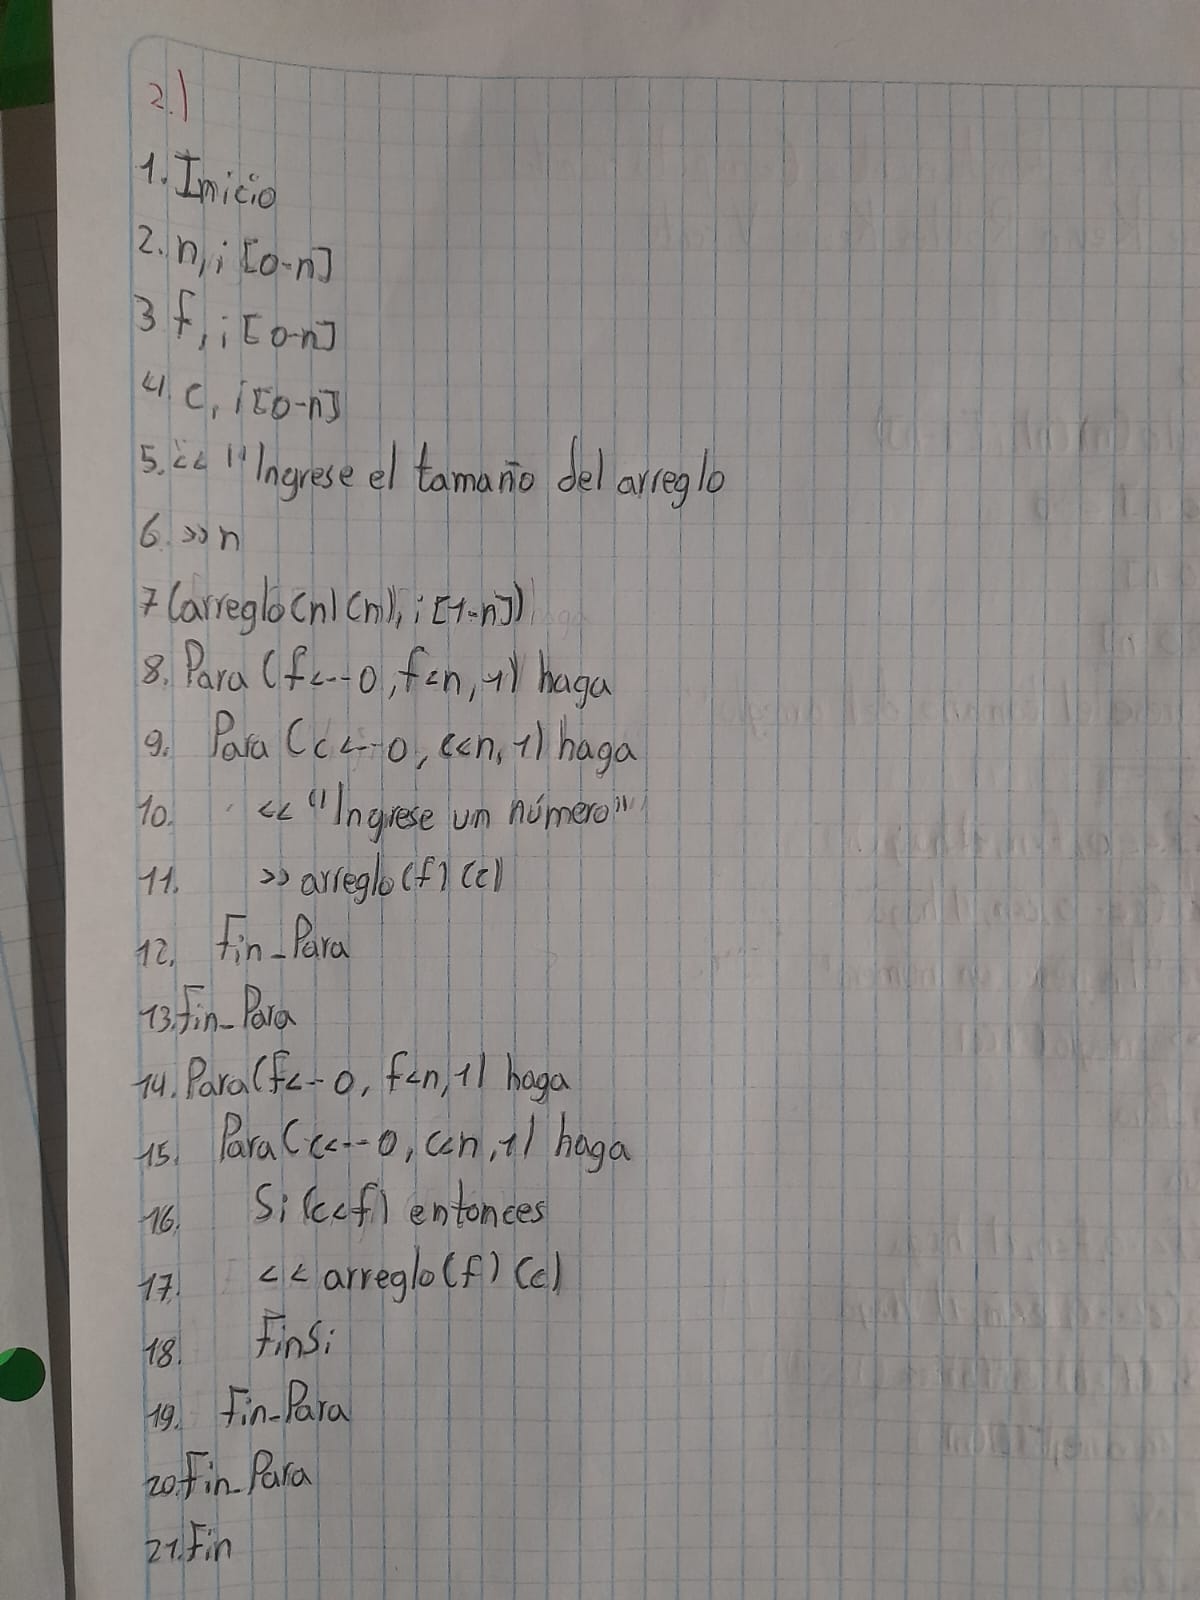 2.)
1. Inicio
2. n, i [0-n]
3 f, i [0-n]
4. c, i [0-n]
5. << "Ingrese el tamaño del arreglo
6. >> n
7 (arreglo(n)(m), i [1-n])
8. Para (f<--0, f<n, 1) haga
9. Para (c<--0, c<n, 1) haga
10. << "Ingrese un número"
11. >> arreglo(f)(c)
12. Fin_Para
13. Fin_Para
14. Para (f<-- 0, f<n, 1) haga
15. Para (c<--0, c<n, 1) haga
16. Si (c<f) entonces
17. << arreglo(f)(c)
18. FinSi
19. Fin_Para
20. Fin_Para
21. Fin